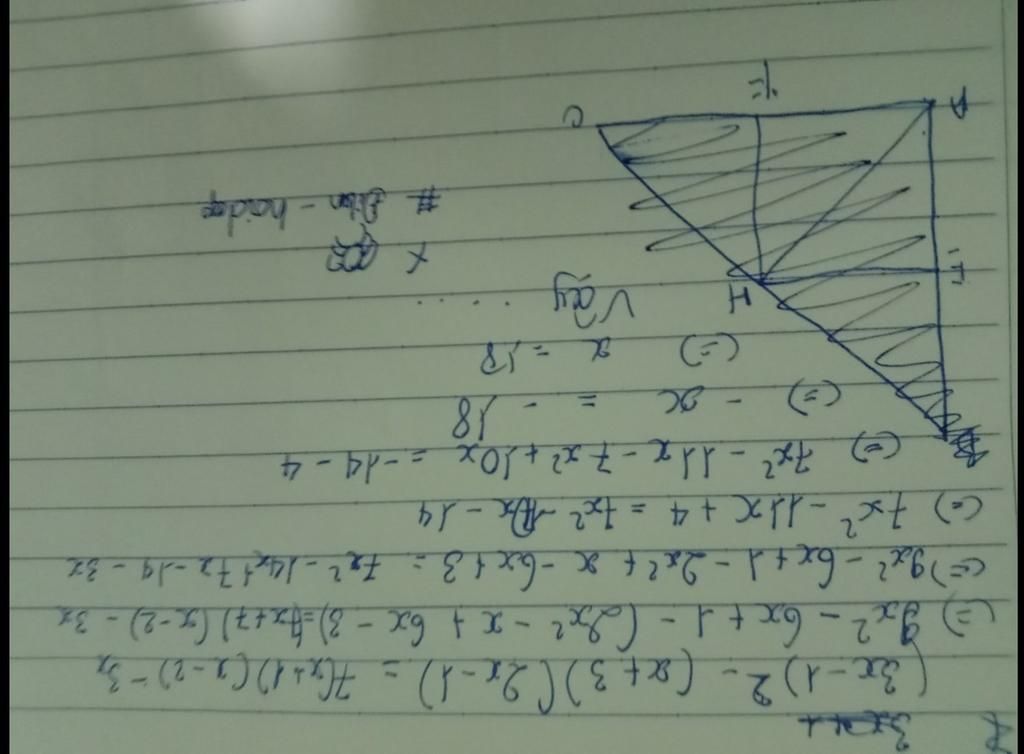 (3x-1)² - (x+3)(2x-1) = 7(x+1)(x-2) - 3x
(=) 9x² - 6x + 1 - (2x² - x + 6x - 3) = (7x+7)(x-2) - 3x
(=) 9x² - 6x + 1 - 2x² + x - 6x + 3 = 7x² - 14x + 7x - 14 - 3x
(=) 7x² - 11x + 4 = 7x² - 10x - 14
(=) 7x² - 11x - 7x² + 10x = -14 - 4
(=) - x = - 18
(=) x = 18
Vậy ....
B
H
F
C
E
A